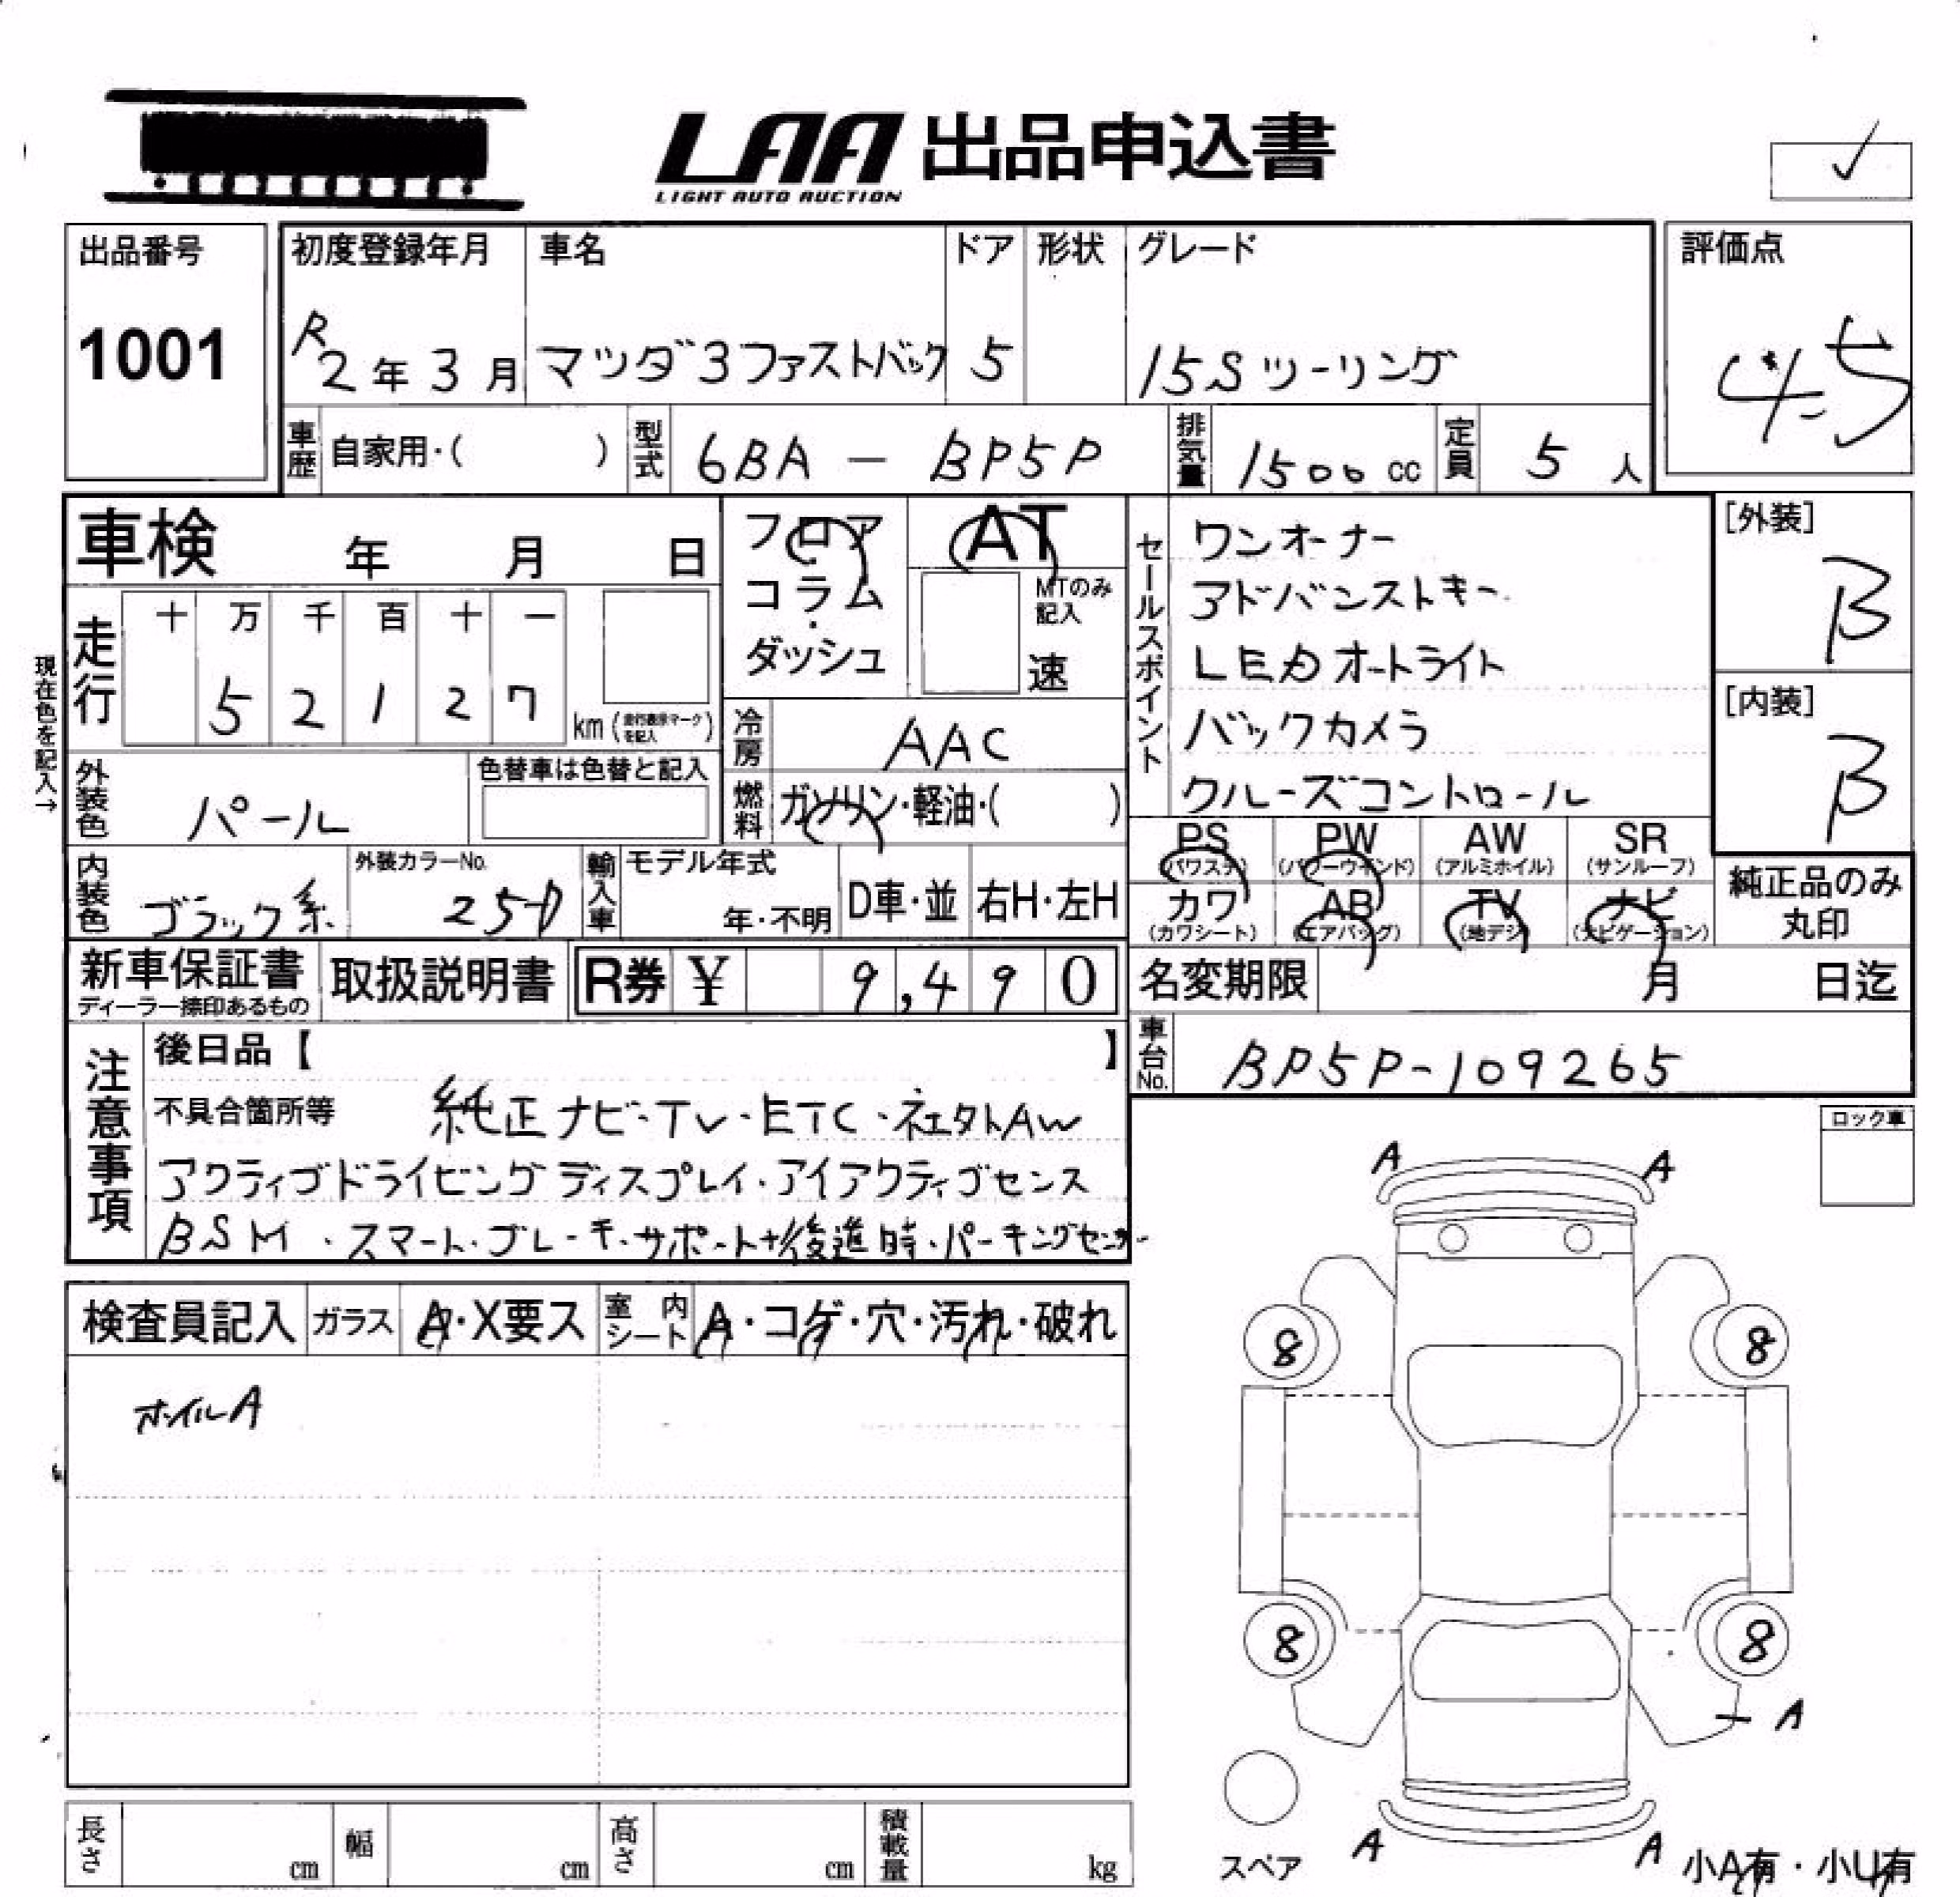 LAA 出品申込書
LIGHT AUTO AUCTION
出品番号
1001
初度登録年月
R2年3月
車名
マツダ3ファストバック
ドア
5
形状
グレード
15Sツーリング
評価点
4.5
車歴 自家用・( )
型式 6BA － BP5P
排気量 1500 cc
定員 5 人
車検 年 月 日
現在色を記入→
走行
十 万 千 百 十 一
5 2 1 2 7
km (走行表示マークを記入)
フロア・コラム・ダッシュ
AT
MTのみ記入
速
冷房 AAC
燃料 ガソリン・軽油・( )
セールスポイント
ワンオーナー
アドバンストキー
LEDオートライト
バックカメラ
クルーズコントロール
[外装]
B
[内装]
B
外装色 パール
色替車は色替と記入
内装色 ブラック系
外装カラーNo.
25D
輸入車
モデル年式
年・不明
D車・並
右H・左H
PS (パワステ)
PW (パワーウインド)
AW (アルミホイル)
SR (サンルーフ)
カワ (カワシート)
AB (エアバッグ)
TV (地デジ)
ナビ (ナビゲーション)
純正品のみ丸印
新車保証書
ディーラー捺印あるもの
取扱説明書
R券 ¥ 9,490
名変期限 月 日迄
車台No. BP5P-109265
注意事項
後日品【 】
不具合箇所等 純正ナビ・TV・ETC・社外AW
アクティブドライビングディスプレイ・アイアクティブセンス
BSM・スマート・ブレーキ・サポート+後進時・パーキングセンサー
ロック車
検査員記入
ガラス A・X要ス
室内シート A・コゲ・穴・汚れ・破れ
ホイルA
A A
8 8
8 8
A
A A
スペア
小A有・小U有
長さ cm
幅 cm
高さ cm
積載量 kg